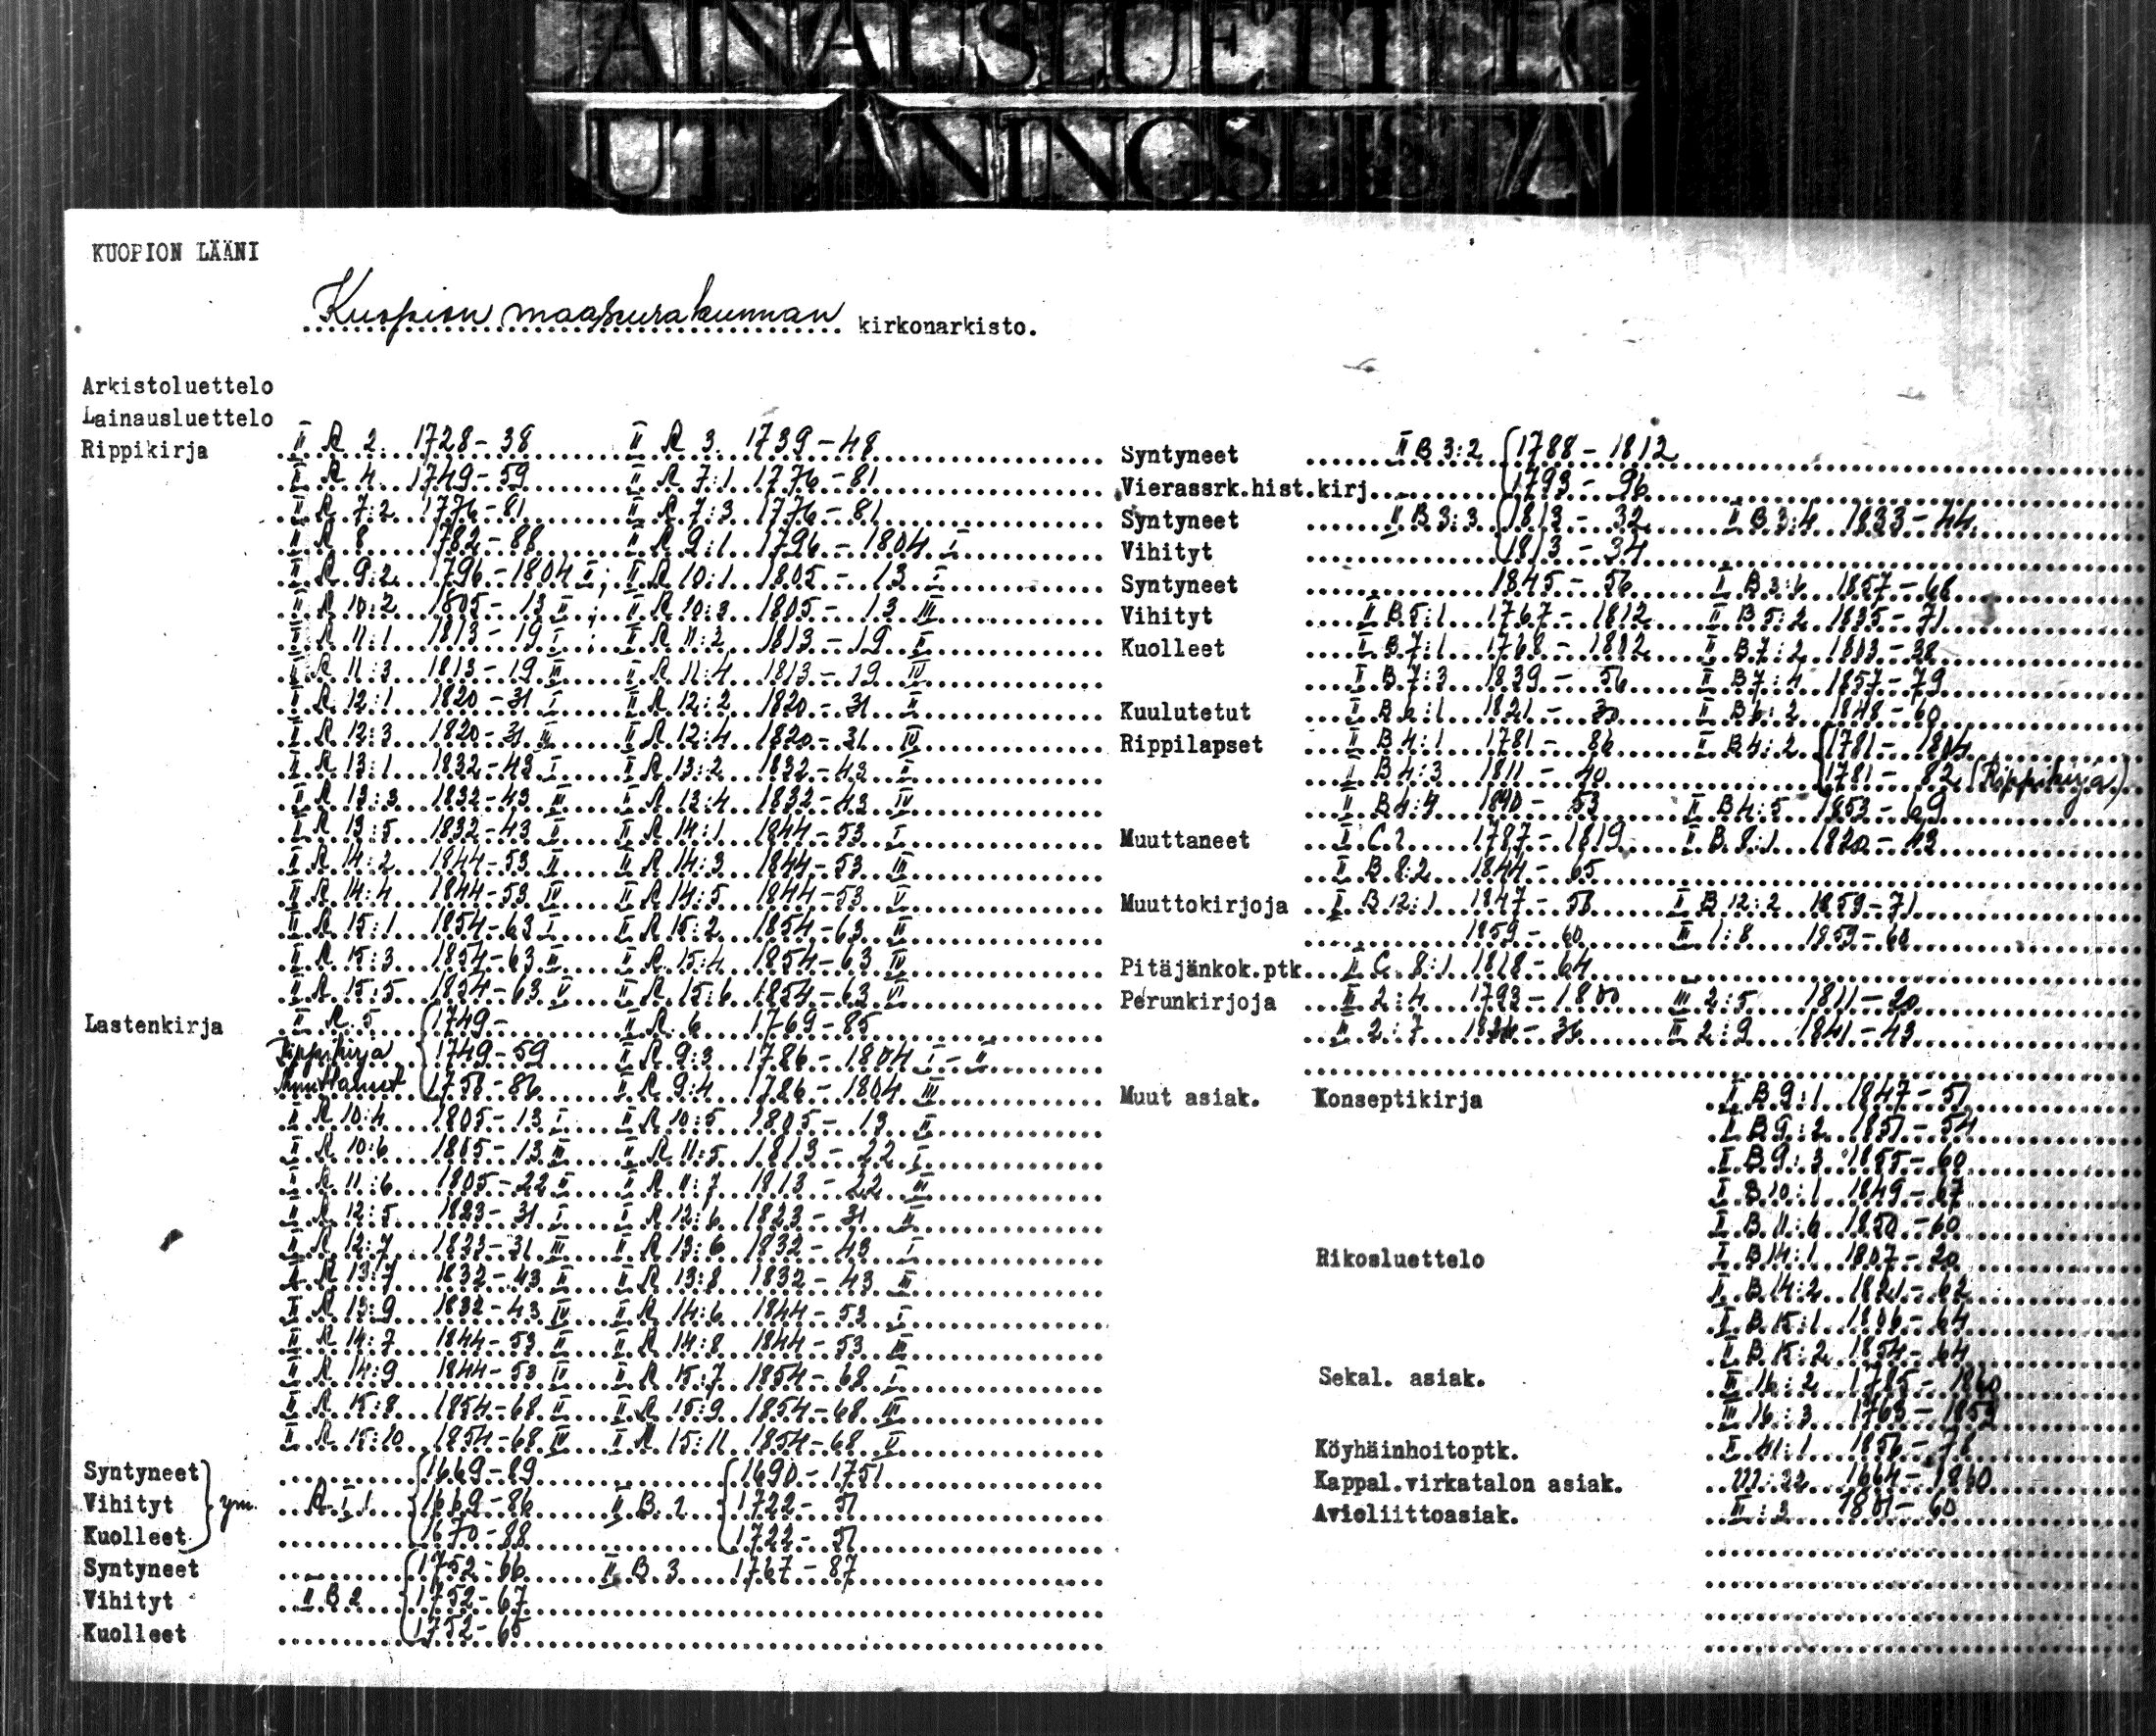 LAINAUSLUETTELO
UTLÅNINGSLISTA
KUOPION LÄÄNI
Kuopion maaseurakunnan kirkonarkisto.
Arkistoluettelo
Lainausluettelo
Rippikirja II A 2 1728-38 II A 3 1739-48
II A 4 1749-59 II A 7:1 1776-81
II A 7:2 1776-81 II A 7:3 1776-81
II A 8 1782-88 II A 9:1 1796-1804 I
II A 9:2 1796-1804 II; II A 10:1 1805-13 I
II A 10:2 1805-13 II; II A 10:3 1805-13 III
II A 11:1 1813-19 I; II A 11:2 1813-19 II
II A 11:3 1813-19 III II A 11:4 1813-19 IV
II A 12:1 1820-31 I II A 12:2 1820-31 II
II A 12:3 1820-31 III II A 12:4 1820-31 IV
II A 13:1 1832-43 I II A 13:2 1832-43 II
II A 13:3 1832-43 III II A 13:4 1832-43 IV
II A 13:5 1832-43 V II A 14:1 1844-53 I
II A 14:2 1844-53 II II A 14:3 1844-53 III
II A 14:4 1844-53 IV II A 14:5 1844-53 V
II A 15:1 1854-63 I II A 15:2 1854-63 II
II A 15:3 1854-63 III II A 15:4 1854-63 IV
II A 15:5 1854-63 V II A 15:6 1854-63 VI
Lastenkirja II A 5 1749- II A 6 1769-85
Rippikirja 1749-59 II A 9:3 1786-1804 I-II
Muuttaneet 1758-86 II A 9:4 1786-1804 III
II A 10:4 1805-13 I II A 10:5 1805-13 II
II A 10:6 1805-13 III II A 11:5 1813-22 I
II A 11:6 1805-22 II II A 11:7 1813-22 III
II A 12:5 1823-31 I II A 12:6 1823-31 II
II A 12:7 1823-31 III II A 13:6 1832-43 I
II A 13:7 1832-43 II II A 13:8 1832-43 III
II A 13:9 1832-43 IV II A 14:6 1844-53 I
II A 14:7 1844-53 II II A 14:8 1844-53 III
II A 14:9 1844-53 IV II A 15:7 1854-68 I
II A 15:8 1854-68 II II A 15:9 1854-68 III
II A 15:10 1854-68 IV II A 15:11 1854-68 V
Syntyneet 1669-89 1690-1751
Vihityt ym. A I 1 1669-86 II B 1 1722-51
Kuolleet 1670-88 1722-51
Syntyneet 1752-66 II B 3 1767-87
Vihityt II B 2 1752-67
Kuolleet 1752-65
Syntyneet II B 3:2 1788-1812
Vierassrk.hist.kirj. 1793-96
Syntyneet II B 3:3 1813-32 II B 3:4 1833-44
Vihityt 1813-34
Syntyneet 1845-56 II B 3:6 1857-68
Vihityt II B 5:1 1767-1812 II B 5:2 1835-71
Kuolleet II B 7:1 1768-1812 II B 7:2 1813-38
II B 7:3 1839-56 II B 7:4 1857-79
Kuulutetut II B 6:1 1821-30 II B 6:2 1848-60
Rippilapset II B 4:1 1781-86 II B 4:2 1781-1804
II B 4:3 1811-40 1781-82 (Rippikirja)
II B 4:4 1840-53 II B 4:5 1853-69
Muuttaneet II C 1787-1819 II B 8:1 1820-43
II B 8:2 1844-65
Muuttokirjoja II B 12:1 1847-58 II B 12:2 1859-71
1859-60 III 1:8 1859-60
Pitäjänkok.ptk. II C 8:1 1818-64
Perunkirjoja III 2:4 1793-1800 III 2:5 1811-20
III 2:7 36 III 2:9 1841-43
Muut asiak. Konseptikirja II B 9:1 1847-51
II B 9:2 1851-54
II B 9:3 1855-60
II B 10:1 1849-67
II B 11:6 1850-60
Rikosluettelo II B 14:1 1807-20
II B 14:2 1821-62
II B 15:1 1806-64
II B 15:2 1854-64
Sekal. asiak. III 16:2 1785-1860
III 16:3 1763-
Köyhäinhoitoptk. II 41:1 1856-78
Kappal.virkatalon asiak. III:32 1664-1860
Avioliittoasiak. II:3 1801-60